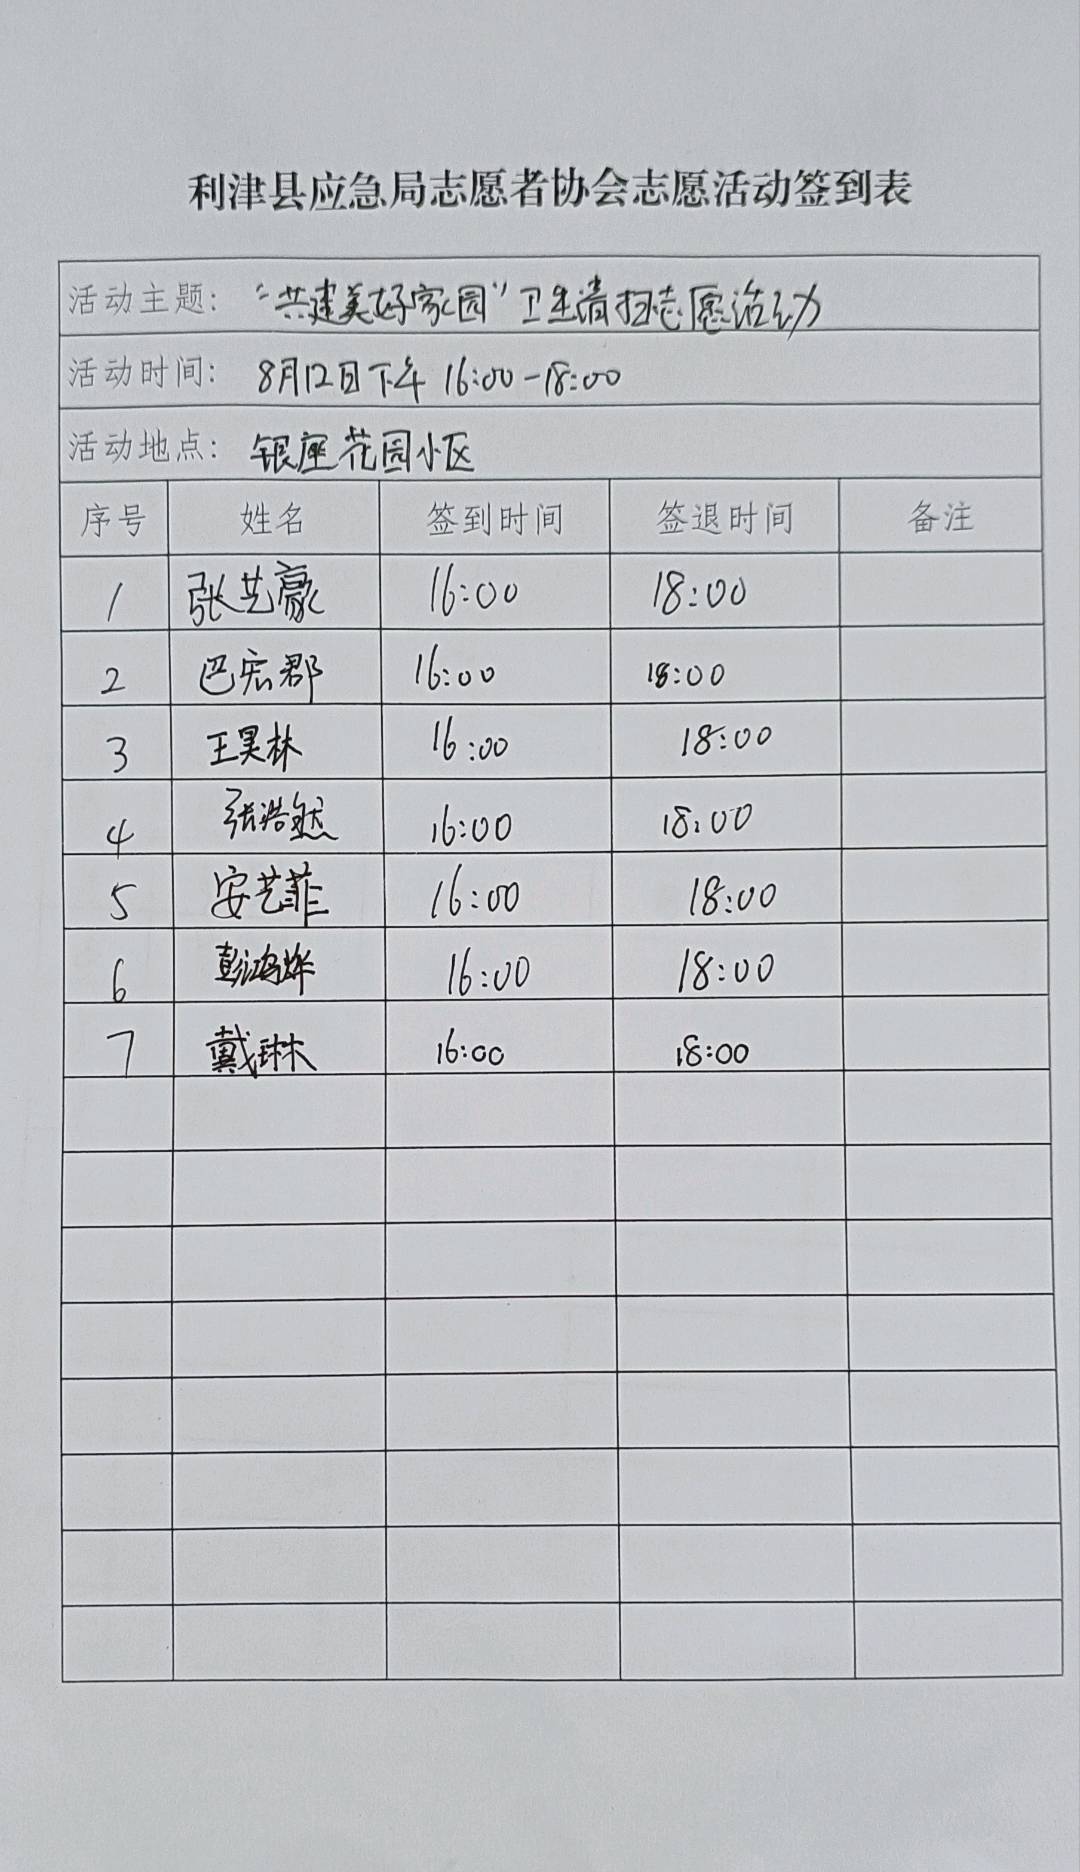 利津县应急局志愿者协会志愿活动签到表
活动主题：“共建美好家园”卫生清扫志愿活动
活动时间：8月12日下午 16:00-18:00
活动地点：银座花园小区
序号 姓名 签到时间 签退时间 备注
1 张艺豪 16:00 18:00
2 巴宏郡 16:00 18:00
3 王昊林 16:00 18:00
4 张浩然 16:00 18:00
5 安艺菲 16:00 18:00
6 彭鸿烨 16:00 18:00
7 戴琳 16:00 18:00